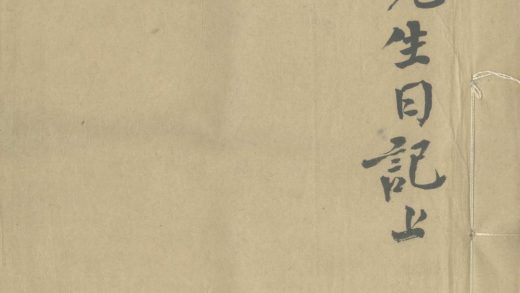 先生日記上